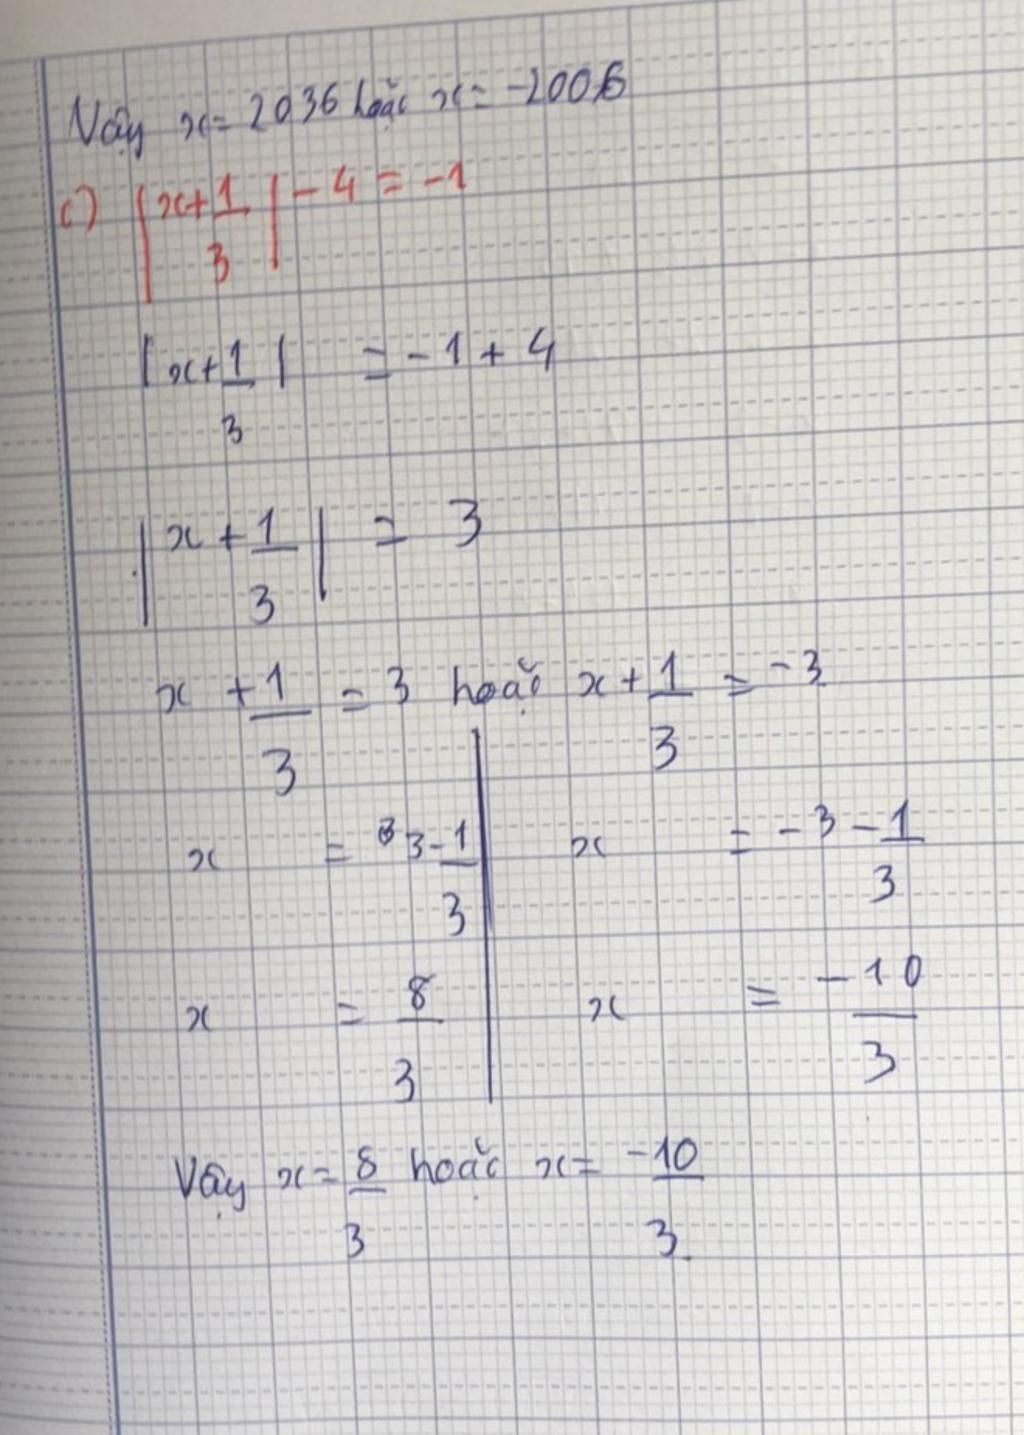 Vậy x = 2036 hoặc x = -2006
c) |x + 1/3| - 4 = -1
|x + 1/3| = -1 + 4
|x + 1/3| = 3
x + 1/3 = 3 hoặc x + 1/3 = -3
x = 3 - 1/3 | x = -3 - 1/3
x = 8/3 | x = -10/3
Vậy x = 8/3 hoặc x = -10/3